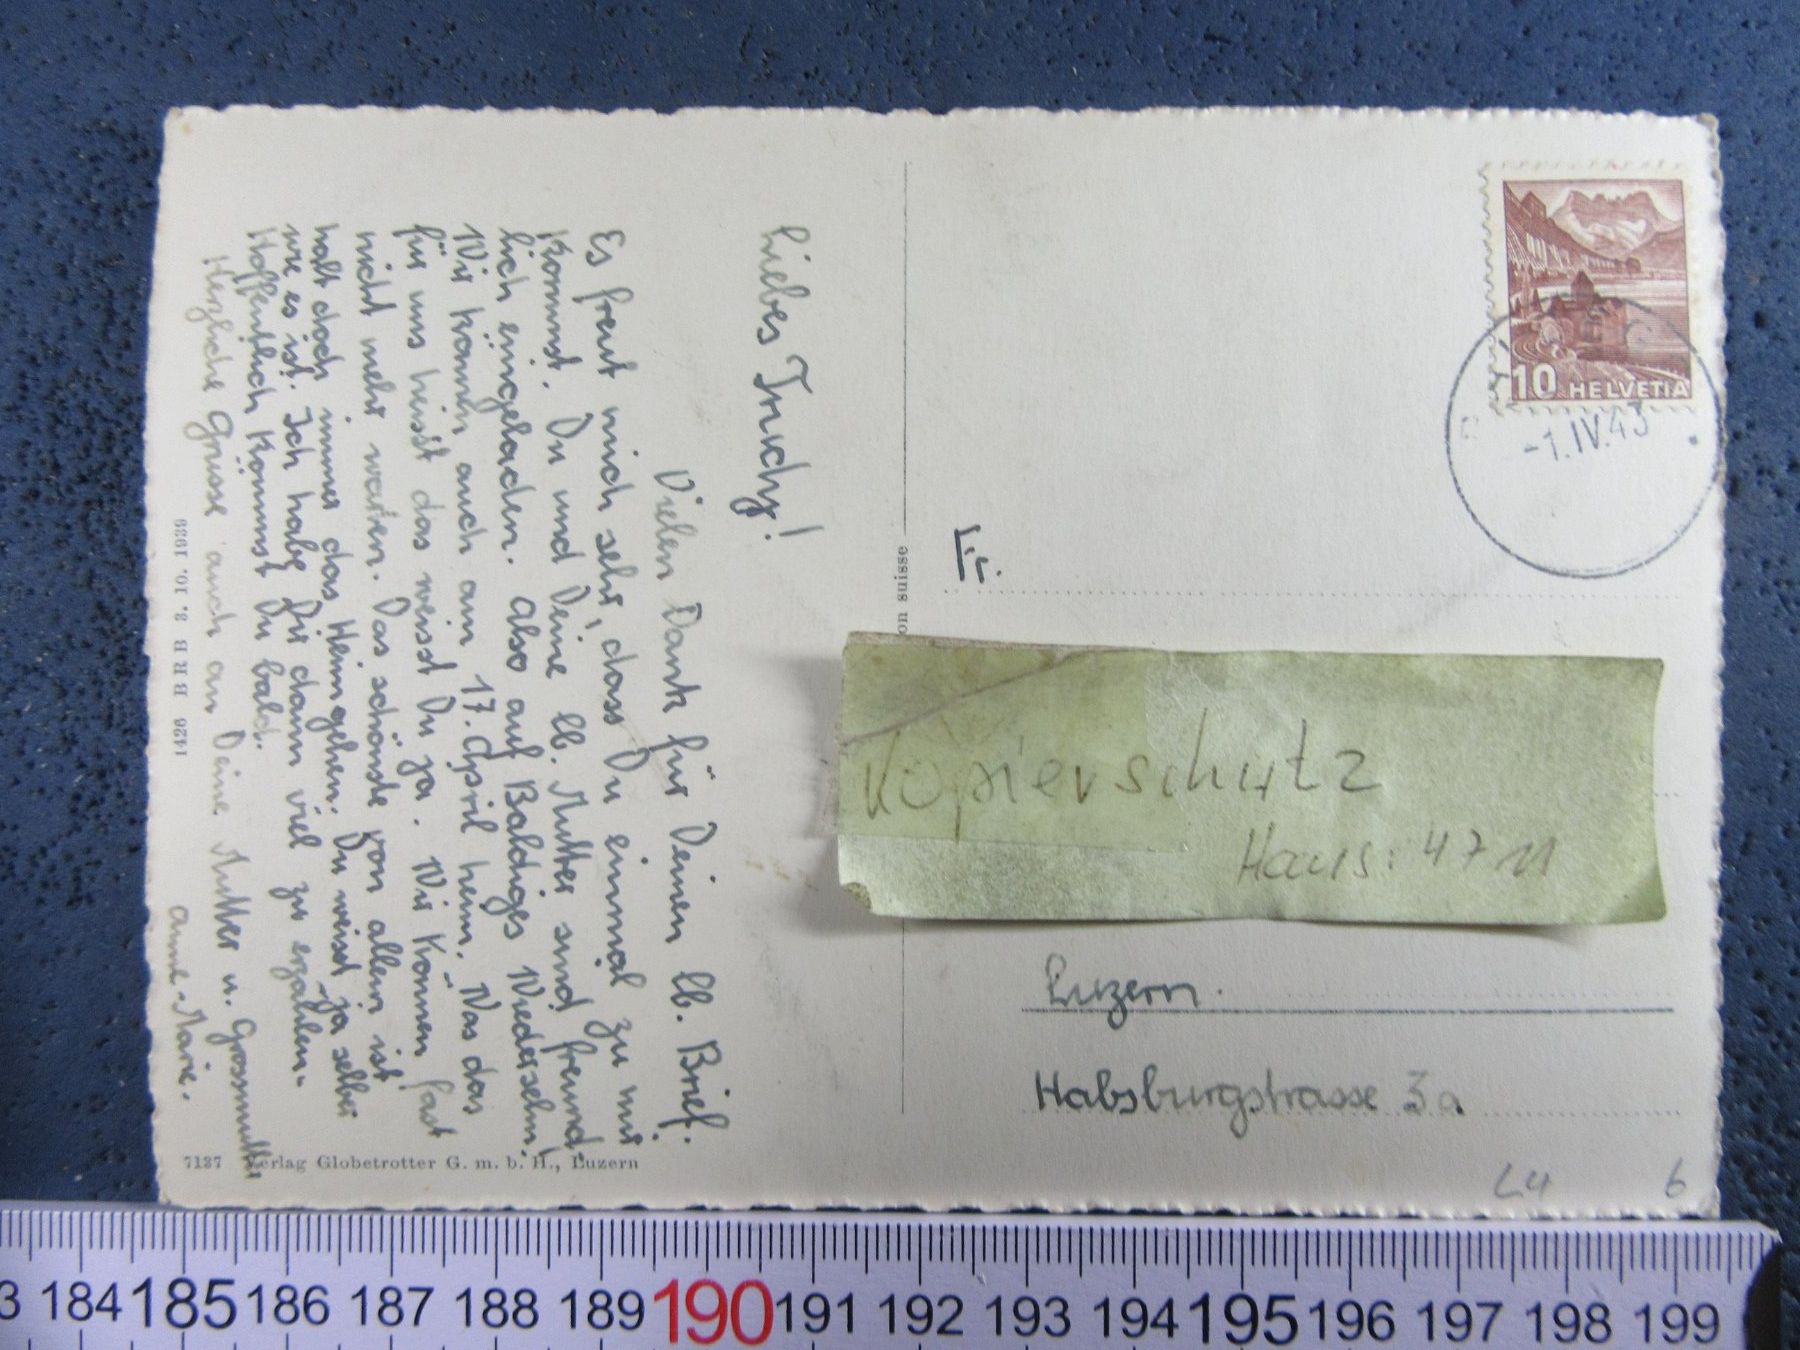 Liebes Trudy!
Vielen Dank für Deinen lb. Brief.
Es freut mich sehr, dass Du einmal zu mir
kommst. Du und Deine lb. Mutter sind freund-
lich eingeladen. Also auf Baldiges Wiedersehn!
Wir können auch am 17. April heim. Was das
für uns heisst das weisst Du ja. Wir können fast
nicht mehr warten. Das schönste von allem ist
halt doch immer das Heimgehen. Du weisst ja selber
wie es ist. Ich habe Dir dann viel zu erzählen.
Hoffentlich kommst Du bald.
Herzliche Grüsse auch an Deine Mutter u. Grossmutter
Anne-Marie.
1426 BRB 3. 10. 1939
7127 Verlag Globetrotter G. m. b. H., Luzern
on suisse
10 HELVETIA
-1.IV.43
Frl.
Kopierschutz
Haus: 4711
Luzern.
Habsburgstrasse 3a
L4 6
3 184 185 186 187 188 189 190 191 192 193 194 195 196 197 198 199